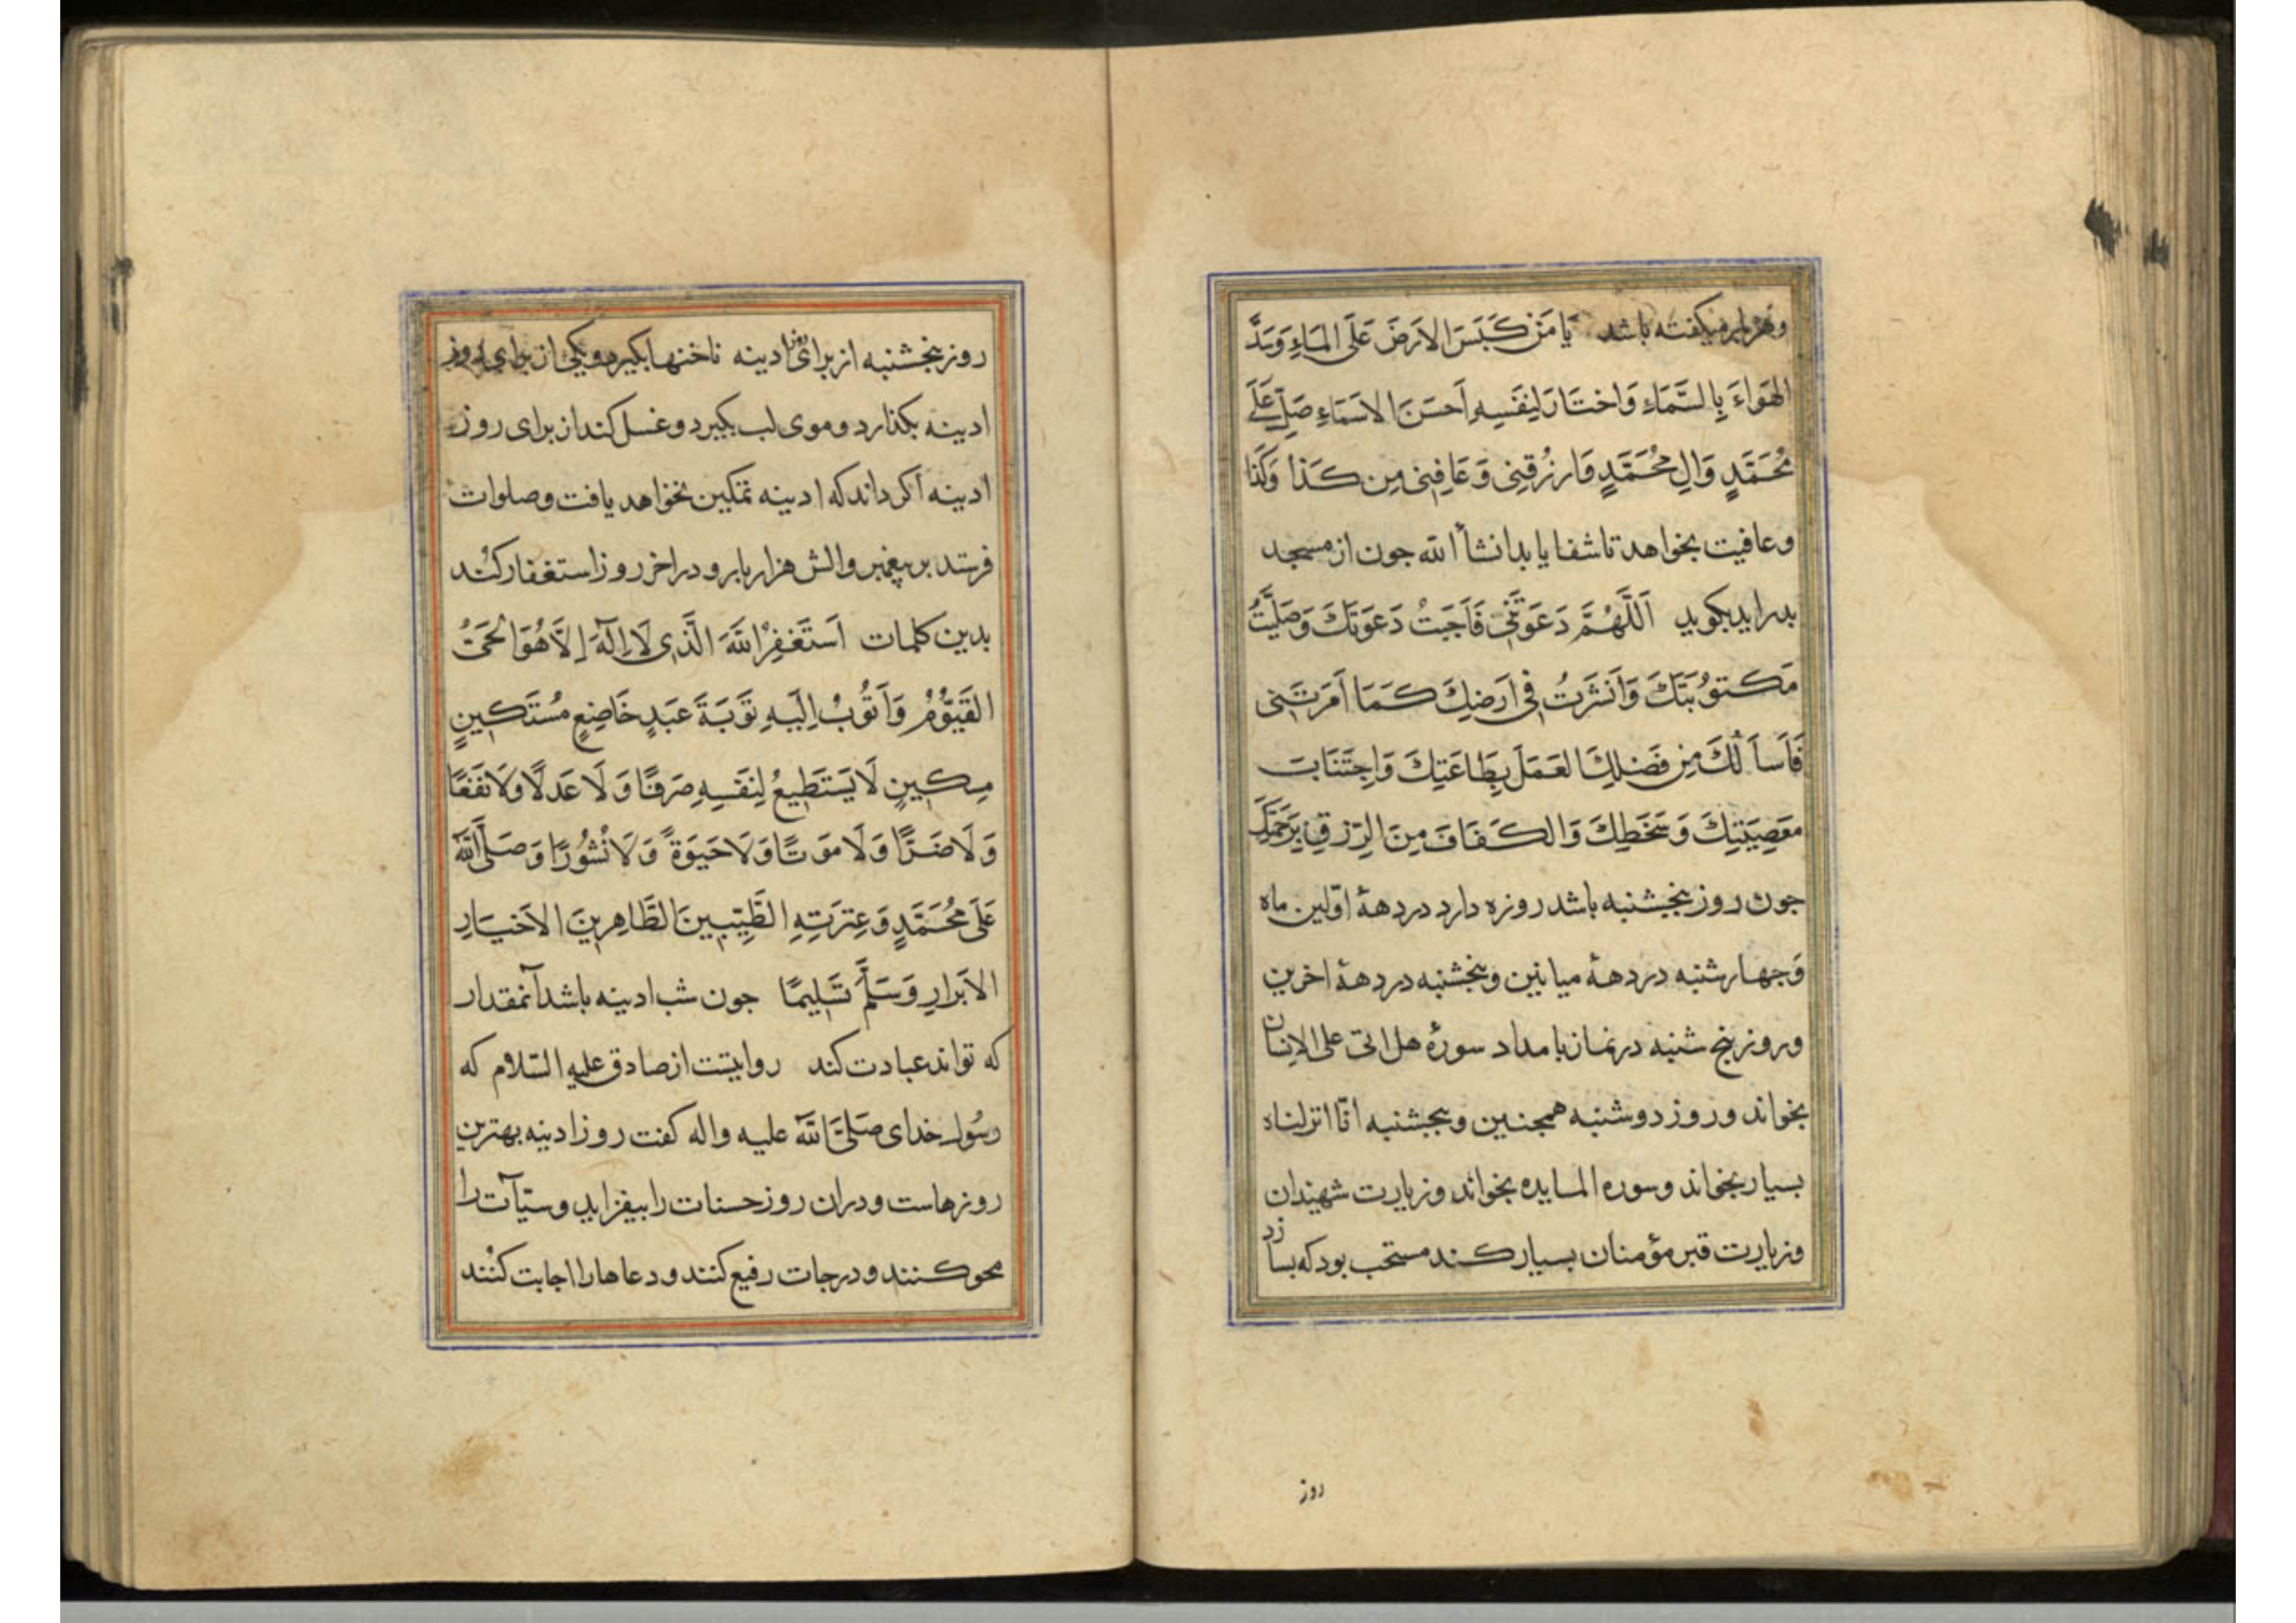 وهربار میکفته باشد یَا مَنْ کَبَسَ الاَرضَ عَلَی المَاءِ وَسَدَّ
الهَوَاءَ بِالسَّمَاءِ وَاختَارَ لِنَفسِهِ اَحسَنَ الاَسمَاءِ صَلِّ عَلَی
مُحَمَّدٍ وَالِ مُحَمَّدٍ وَارزُقنِی وَعَافِنِی مِن کَذا وَکَذَا
وعافیت بخواهد تا شفا یابد انشأ الله جون از مسجد
بدر اید بکوید اَللَّهُمَّ دَعَوتَنِی فَاَجَبتُ دَعوَتَكَ وَصَلَّیتُ
مَکتوُبَتَكَ وَانَتشَرتُ فِی اَرضِكَ کَمَا اَمَرتَنِی
فَاَساَلُكَ مِن فَضلِكَ العَمَلَ بِطَاعَتِكَ وَاجتِنَابَ
مَعصِیَتِكَ وَسَخَطِكَ وَالکَفَافَ مِنَ الرِّزقِ بِرَحمَتِكَ
جون روز بنجشنبه باشد روزه دارد در دههٔ اوّلین ماه
وَجهارشنبه در دههٔ میانین وبنجشنبه در دههٔ اخرین
وروز بنج شنبه در نماز بامداد سورهٔ هل اتی علی الانسان
بخواند وروز دوشنبه همجنین وبنجشنبه انّا انزلناه
بسیار بخواند وسوره المایده بخواند وزیارت شهیدان
وزیارت قبر مؤمنان بسیار کند مستحب بود که بسازد
روز
روز بنجشنبه از برای روز ادینه ناخنها بکیرد ویکی از برای روز
ادینه بکذارد وموی لب بکیرد وغسل کند از برای روز
ادینه اکر داند که ادینه تمکین نخواهد یافت وصلوات
فرستد بر پیغمبر والش هزار بار و در اخر روز استغفار کند
بدین کلمات اَستَغفِرُ اللهَ الَّذِی لَا اِلَهَ اِلاَّ هُوَ الحَیُّ
القَیّوُمُ وَاَتُوبُ اِلَیهِ تَوبَةَ عَبدٍ خَاضِعٍ مُستَکِینٍ
مِسکِینٍ لَا یَستَطِیعُ لِنَفسِهِ صَرفًا وَلَا عَدلًا وَلَا نَفعًا
وَلَا ضَرًّا وَلَا مَوتًا وَلَا حَیَوةً وَلَا نُشُورًا وَصَلَّی اللهُ
عَلَی مُحَمَّدٍ وَعِترَتِهِ الطَّیِّبِینَ الطَّاهِرِینَ الاَخیَارِ
الاَبرَارِ وَسَلَّمَ تَسلِیمًا جون شب ادینه باشد آنمقدار
که تواند عبادت کند روایتست از صادق علیه السّلام که
رسُول خدای صَلّی الله علیه واله کفت روز ادینه بهترین
روزهاست ودران روز حسنات را بیفزاید وسیّآت را
محو کنند ودرجات رفیع کنند ودعاها را اجابت کنند